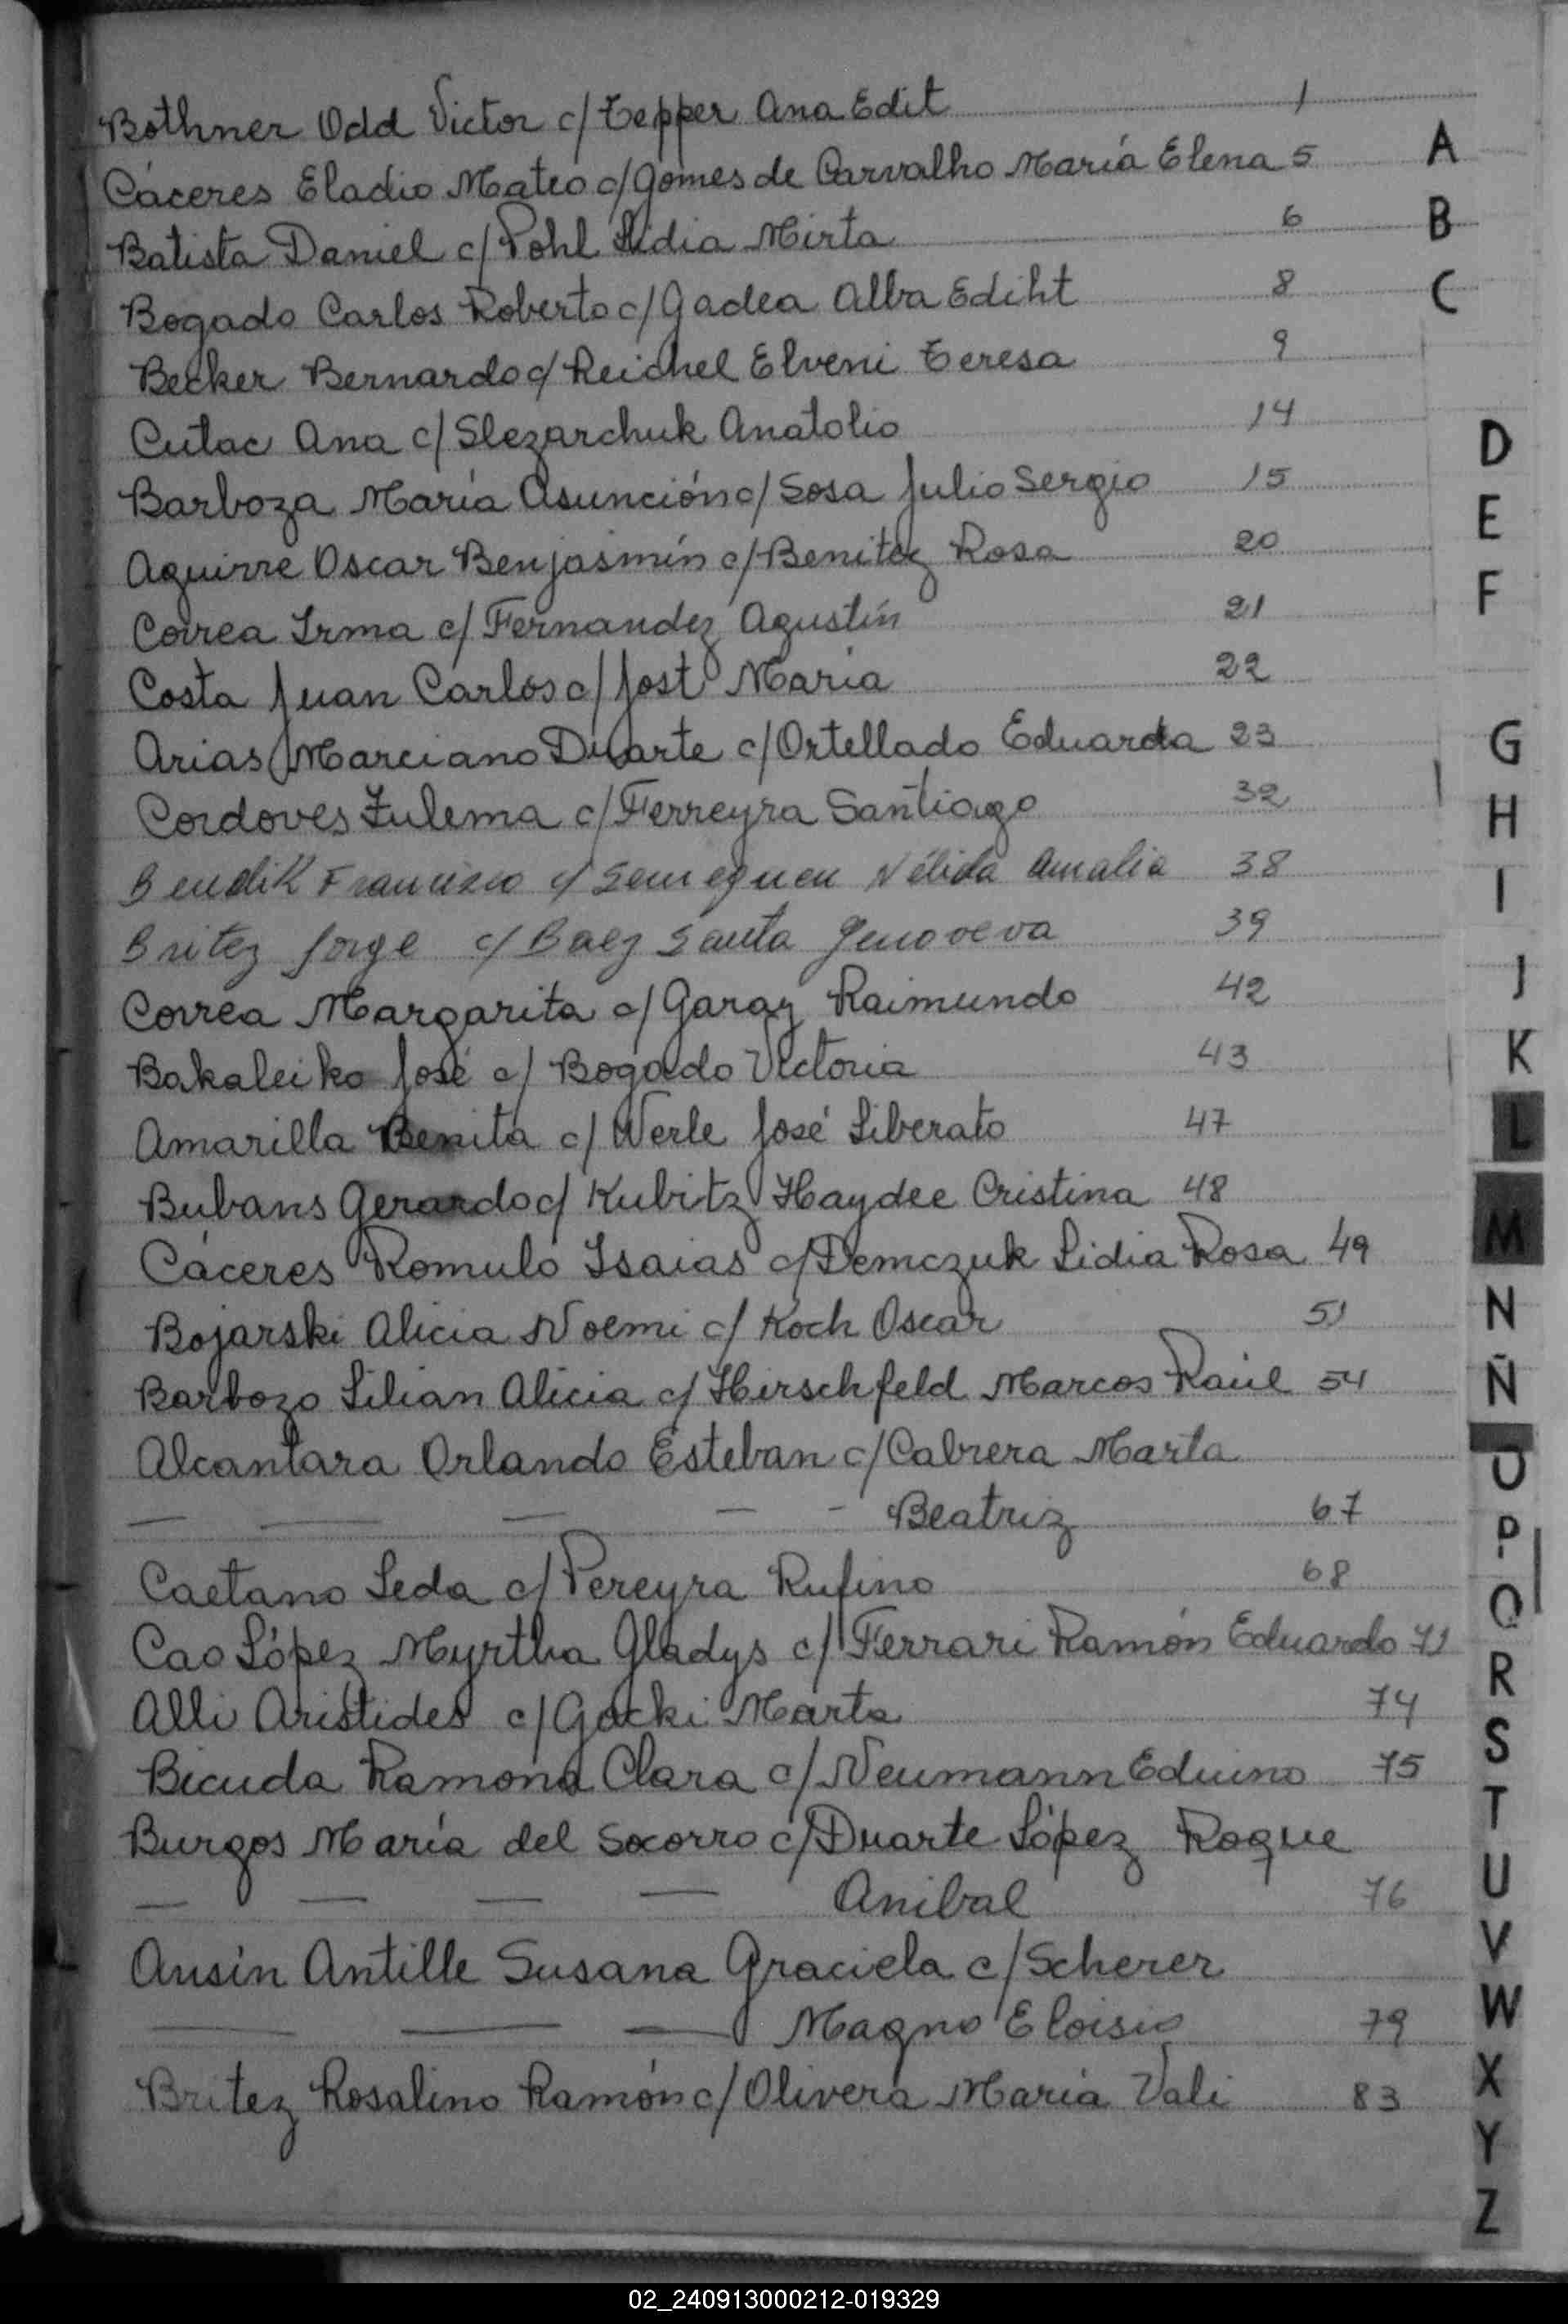 Bothner Odd Victor c/ Tepper Ana Edit 1
Cáceres Eladio Mateo c/ Gomes de Carvalho María Elena 5
Batista Daniel c/ Pohl Lidia Mirta 6
Bogado Carlos Roberto c/ Gadea Alba Ediht 8
Becker Bernardo c/ Reichel Elveni Teresa 9
Cutac Ana c/ Slezarchuk Anatolio 14
Barboza María Asunción c/ Sosa Julio Sergio 15
Aguirre Oscar Benjasmín c/ Benitez Rosa 20
Correa Irma c/ Fernandez Agustín 21
Costa Juan Carlos c/ Jost María 22
Arias Marciano Duarte c/ Ortellado Eduarda 23
Cordoves Zulema c/ Ferreyra Santiago 32
Bendik Francisco c/ Nélida Amalia 38
Britez Jorge c/ Baez Santa Genoveva 39
Correa Margarita c/ Garay Raimundo 42
Bakaleiko José c/ Bogado Victoria 43
Amarilla Benita c/ Werle José Liberato 47
Bubans Gerardo c/ Kubitz Haydee Cristina 48
Cáceres Romulo Isaias c/ Demczuk Lidia Rosa 49
Bojarski Alicia Noemi c/ Koch Oscar 51
Barbozo Lilian Alicia c/ Hirschfeld Marcos Raúl 54
Alcantara Orlando Esteban c/ Cabrera Marta
— — — — - Beatriz 67
Caetano Leda c/ Pereyra Rufino 68
Cao López Myrtha Gladys c/ Ferrari Ramón Eduardo 71
Alli Aristides c/ Gacki Marta 74
Bicuda Ramona Clara c/ Neumann Eduino 75
Burgos María del Socorro c/ Duarte López Roque
— — — — Anibal 76
Ausín Antille Susana Graciela c/ Scherer
— — — Magno Eloisio 79
Britez Rosalino Ramón c/ Olivera María Vali 83
A
B
C
D
E
F
G
H
I
J
K
L
M
N
Ñ
O
P
Q
R
S
T
U
V
W
X
Y
Z
02_240913000212-019329